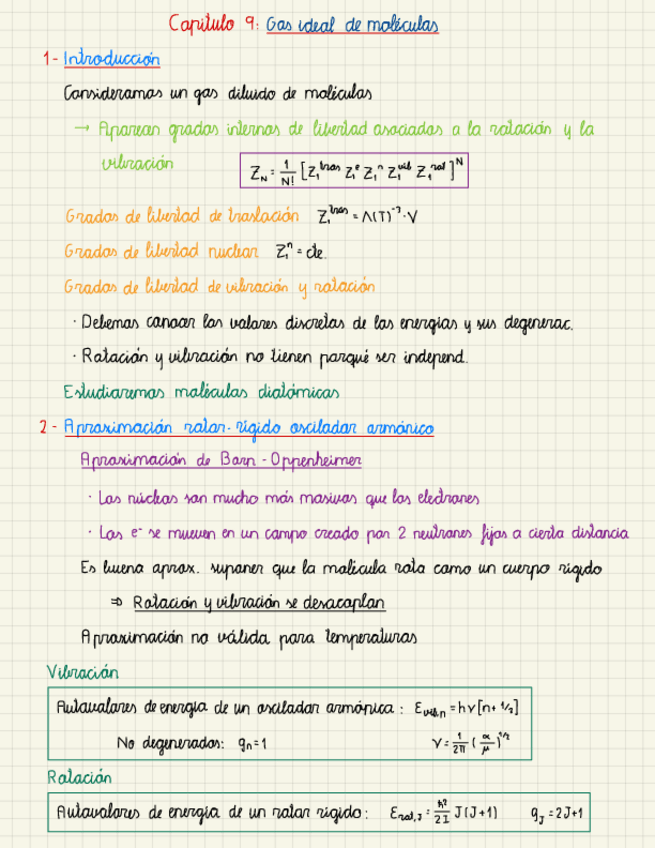 Capítulo 9: Gas ideal de moléculas
1- Introducción
Consideramos un gas diluido de moléculas
→ Aparecen grados internos de libertad asociados a la rotación y la
vibración
Z_N = 1/N! [Z₁^tras Z₁^e Z₁^n Z₁^vib Z₁^rot]^N
Grados de libertad de traslación Z₁^tras = Λ(T)^-3 · V
Grados de libertad nuclear Z₁^n = cte.
Grados de libertad de vibración y rotación
· Debemos conocer los valores discretos de las energías y sus degenerac.
· Rotación y vibración no tienen porqué ser independ.
Estudiaremos moléculas diatómicas
2- Aproximación rotor-rígido oscilador armónico
Aproximación de Born-Oppenheimer
· Los núcleos son mucho más masivos que los electrones
· Los e⁻ se mueven en un campo creado por 2 neutrones fijos a cierta distancia
Es buena aprox. suponer que la molécula rota como un cuerpo rígido
⇒ Rotación y vibración se desacoplan
Aproximación no válida para temperaturas
Vibración
Autovalores de energía de un oscilador armónico: ε_vib,n = hν[n+1/2]
No degenerados: g_n = 1 ν = 1/2π (α/μ)^1/2
Rotación
Autovalores de energía de un rotor rígido: ε_rot,J = ħ²/2I J(J+1) g_J = 2J+1